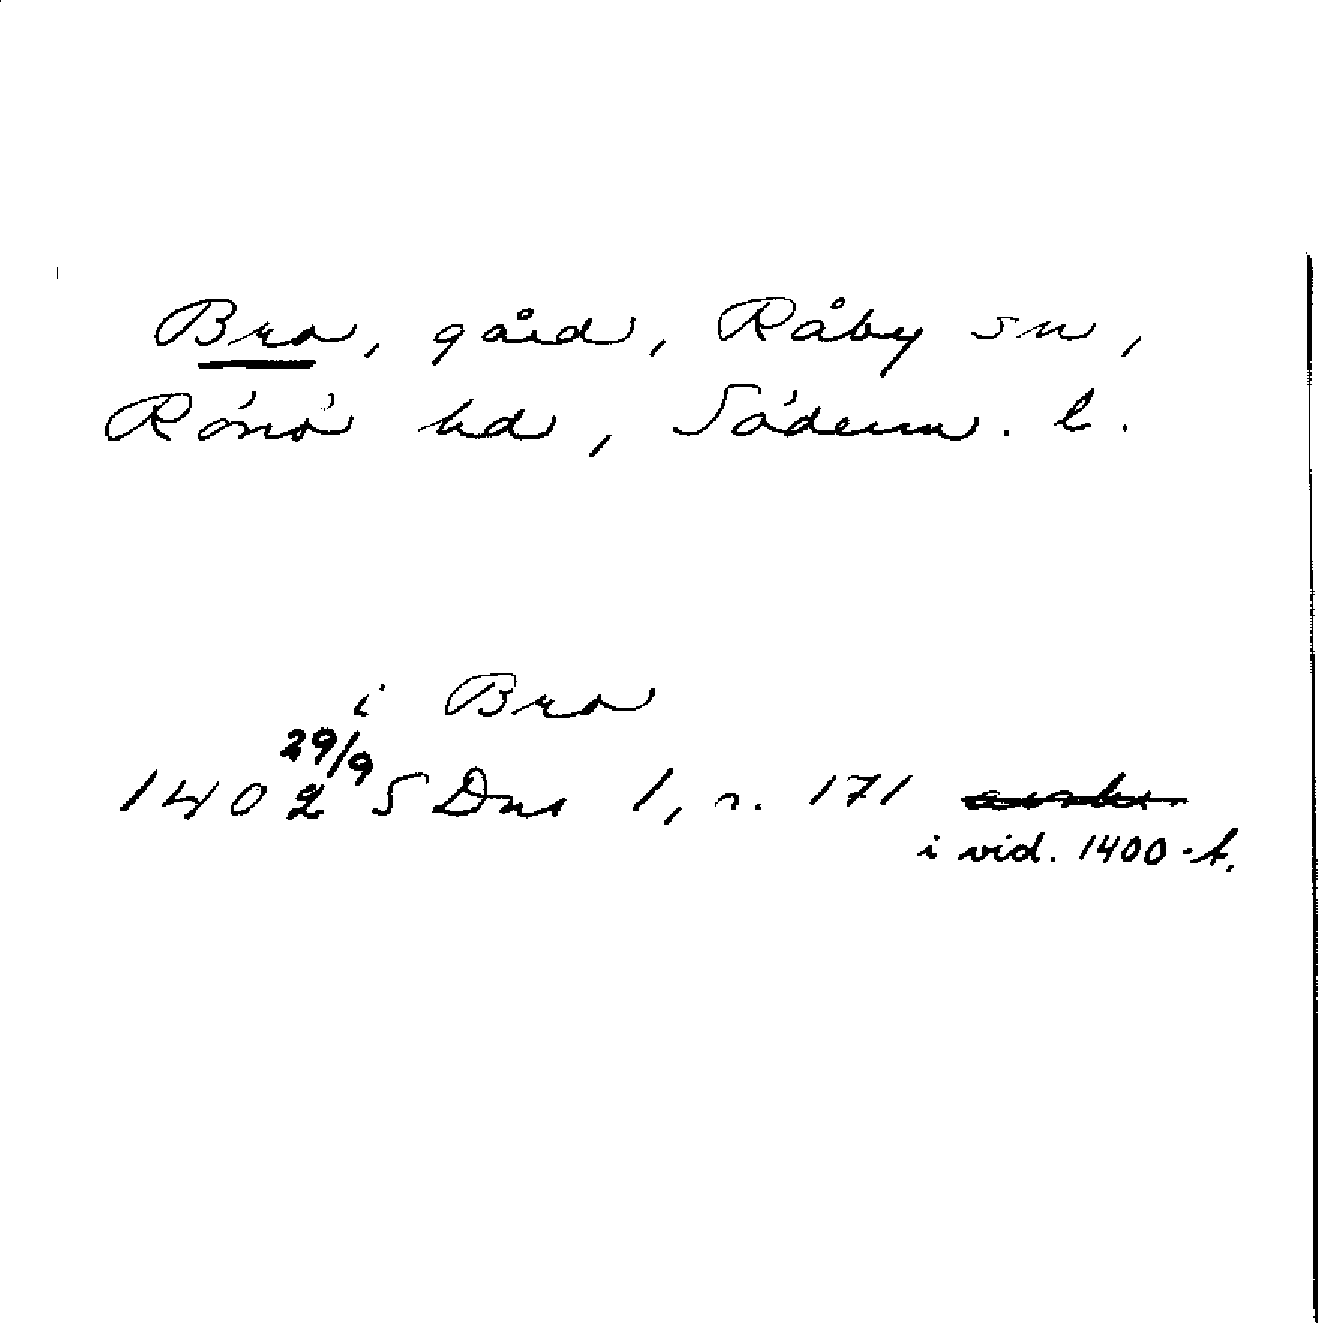 Bro, gård, Råby sn,
Rönö hd, Söderm. l.
i Bro
29/9
1402 SDns 1, s. 171
i vid. 1400-t.